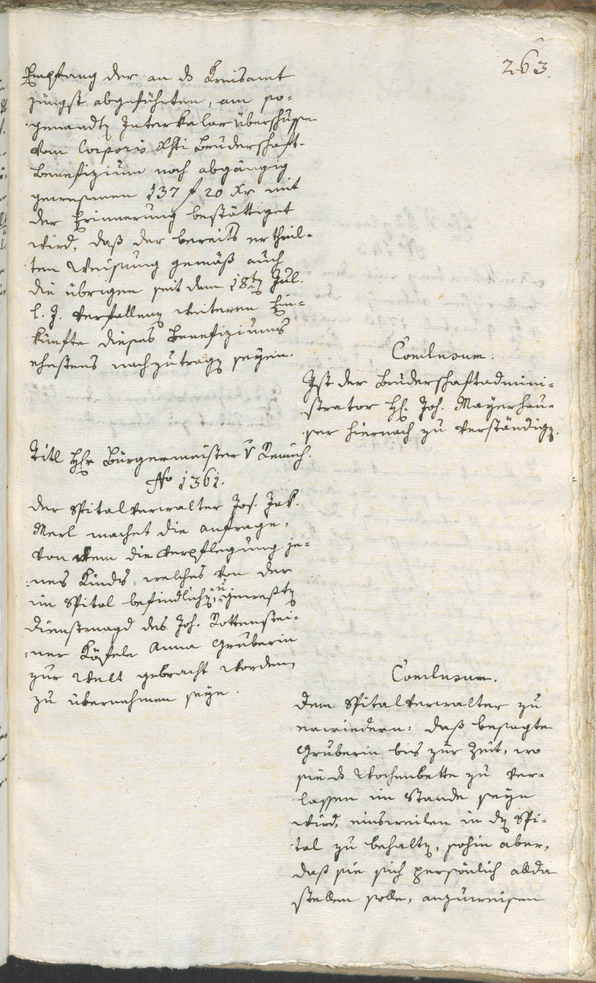 263.
Empfang der an ds Kreisamt
jüngst abgeführten, am so-
genandtn Interkalar überschusse
vom Corporis Xsti Bruderschaft-
Benefizium noch abgängig
gewesenen 137 f 20 Xr mit
der Erinnerung bestättiget
wird, daß der bereits ertheil-
ten Weisung gemäß auch
die übrigen seit dem 18tn Jul.
l. J. verfallenen weiteren Ein-
künfte dieses Benefiziums
ehestens nachzutragn seyen.
Conclusum.
Ist der Bruderschaftadmini-
strator Hl. Joh. Mayerhau-
ser hiernach zu verständign.
Titl Hhr Bürgermeister v
No 1361.
Der Spitalverwalter Jos. Jak.
Merl machet die Anfrage,
von wem die Verpflegung je-
nes Kinds, welches von der
im Spital befindlichn
Dienstmagd des Joh. Rottenstei-
ner Anna Gruberin
zur Welt gebracht worden,
zu übernehmen seye.
Conclusum.
Dem Spitalverwalter zu
erwiedern: daß besagte
Gruberin bis zur Zeit, wo
sie ds Wochenbette zu ver-
lassen im Stande seyn
wird, einsweilen in dn Spi-
tal zu behaltn, sohin aber,
daß sie sich persönlich allda
stellen solle, anzuweisen